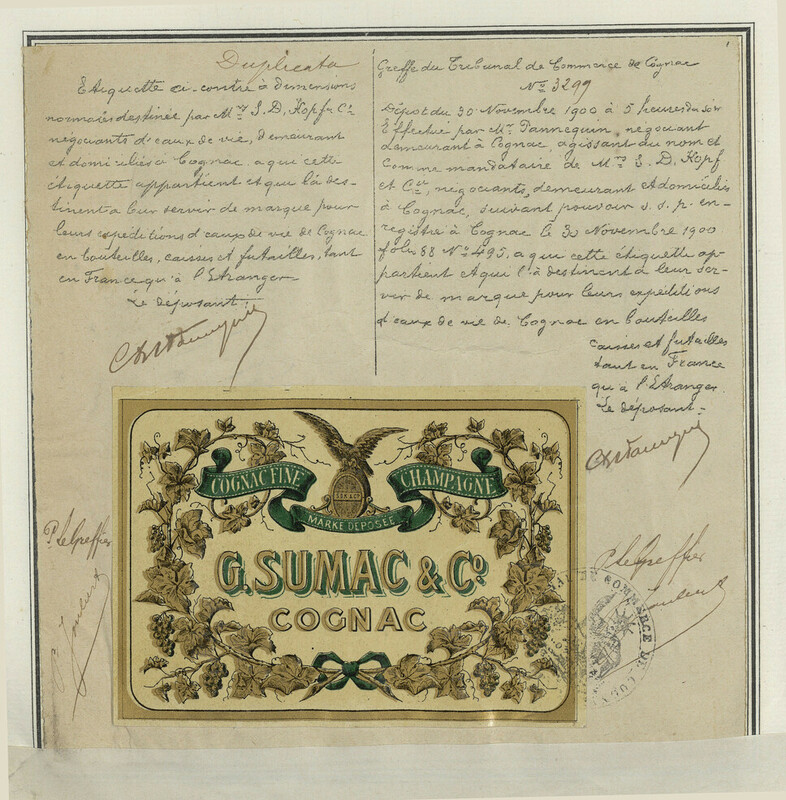 Duplicata
Etiquette ci-contre à dimensions
normales destinée par Mrs S. D. Kopf & Cie
négociants d'eaux de vie, demeurant
et domiciliés à Cognac, a qui cette
étiquette appartient et qui l'à des-
tinent a leur servir de marque pour
leurs expéditions d'eaux de vie de Cognac
en bouteilles, caisses et futailles, tant
en France qu'à l'Etranger
Le déposant
Greffe du Tribunal de Commerce de Cognac
No 3299
Dépôt du 30 Novembre 1900 à 5 heures du soir
Effectué par Mr Pannequin, négociant
demeurant à Cognac, agissant au nom et
comme mandataire de Mrs S. D. Kopf
et Cie, négociants, demeurant et domiciliés
à Cognac, suivant pouvoir s. s. p. en-
registré à Cognac le 30 Novembre 1900
folio 88 No 495, a qui cette étiquette ap-
partient et qui l'à destinent à leur ser-
vir de marque pour leurs expéditions
d'eaux de vie de Cognac en bouteilles
caisses et futailles
tant en France
qu'à l'Etranger.
Le déposant-
COGNAC FINE CHAMPAGNE
MARKE DEPOSÉE
G. SUMAC & Co
COGNAC
P. le Greffier
P. le Greffier